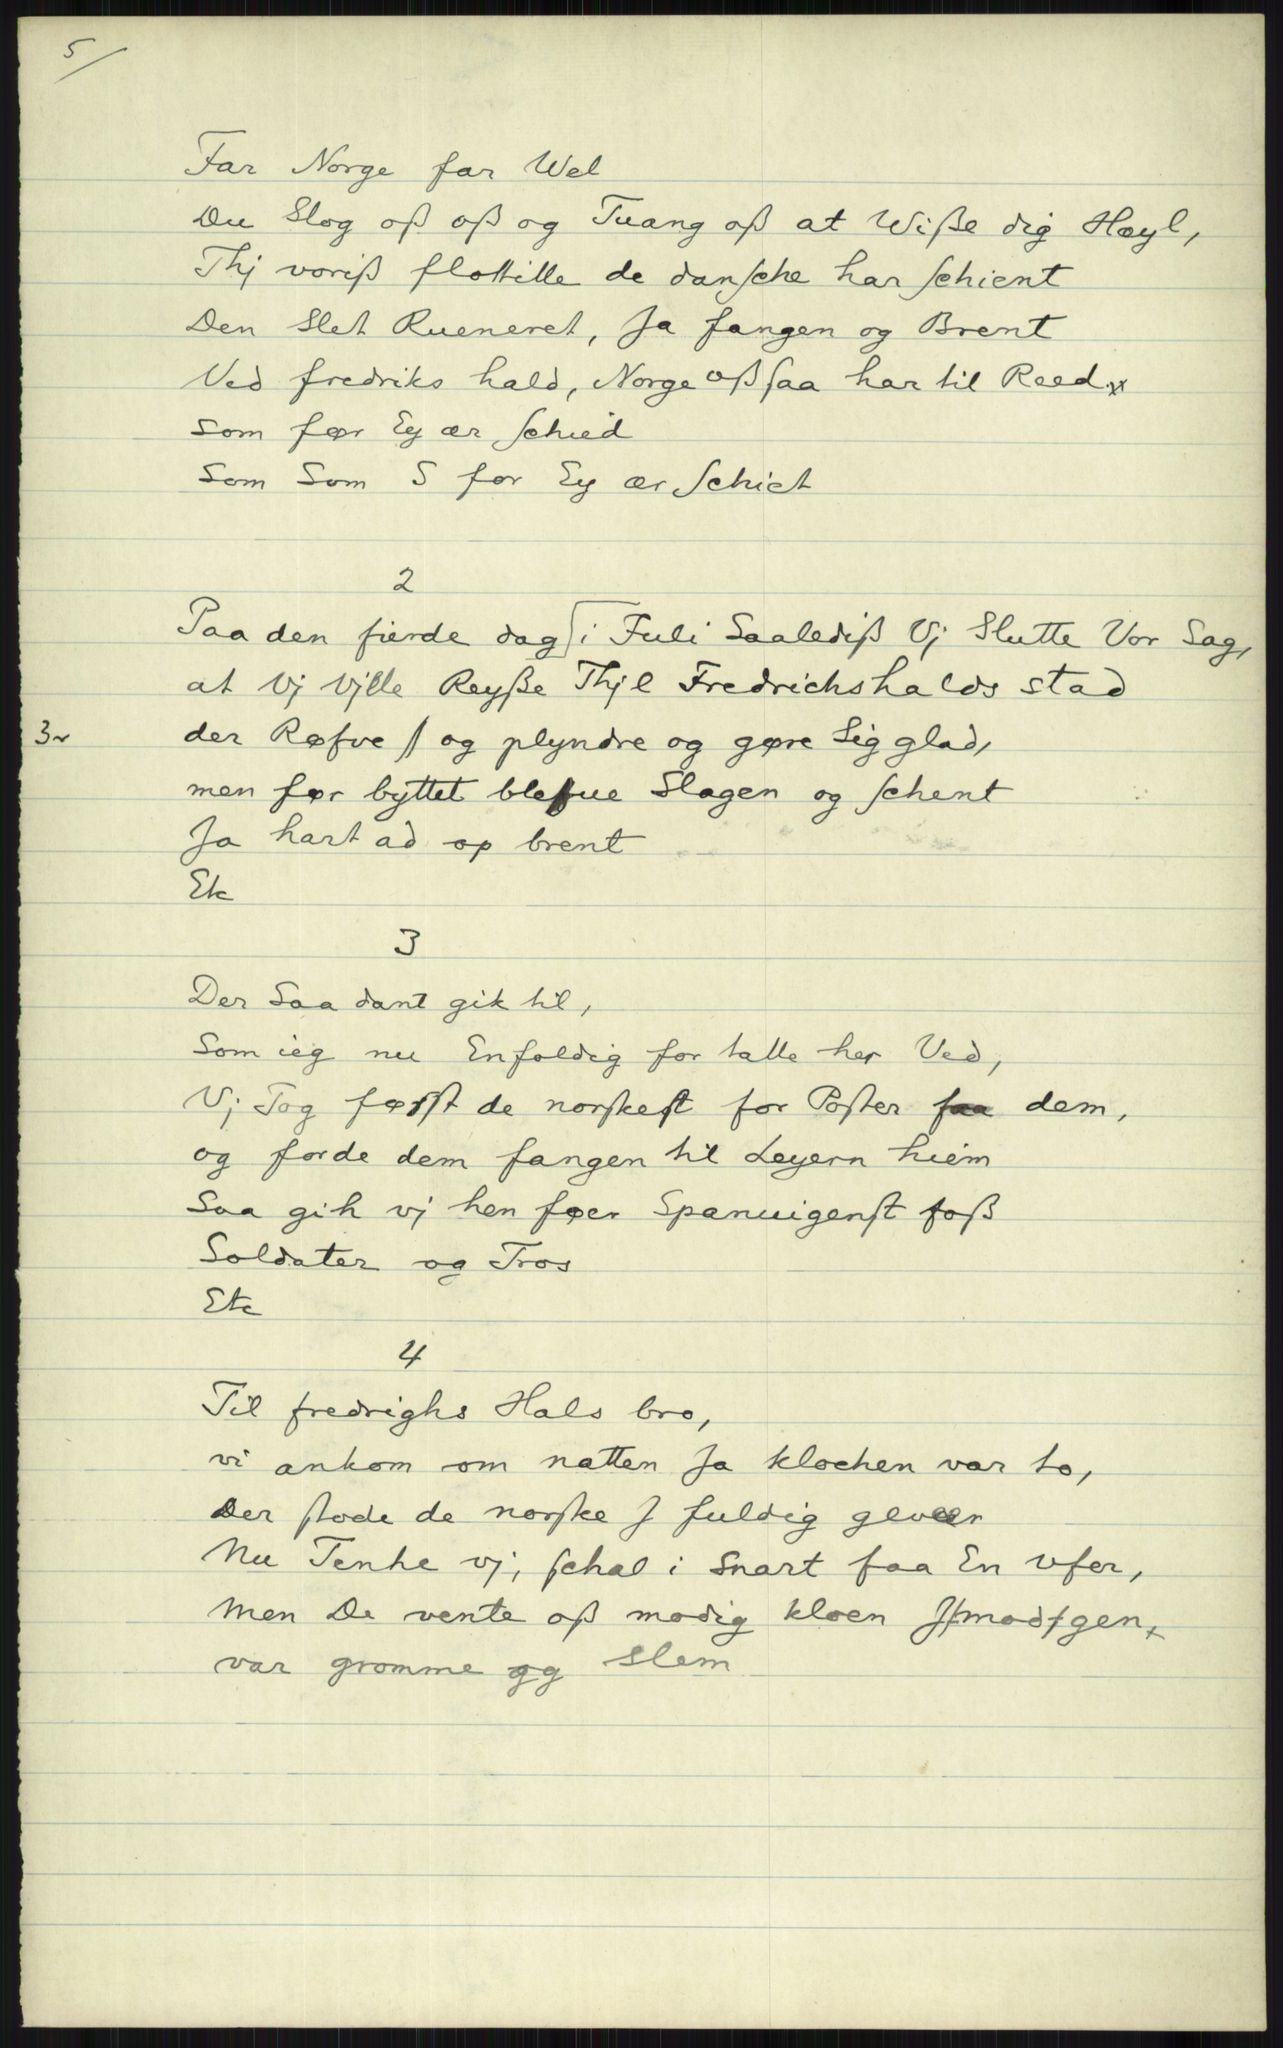 5/
Far Norge far Wel
Du Slog oß oß og Tuang oß at Wiße dig Hæyl,
Thj voriß flottille de danſche har ſchient
Den Slet Rueneret, Ja fangen og Brent
Ved fredriks hald, Norge oß ſaa har til Reed.x
Som før Ey ær ſchied
Som Som S for Ey ær ſchiet
2
Paa den fierde dag [i Juli Saalediß Vj Slutte Vor Sag,
at Vj Vjlle Reyße Thjl Fredrichshalds stad
3v
der Røfve ſ og plyndre og gøre Sig glad,
men før byttet blefue Slagen og ſchent
Ja hart ad op brent
Etc
3
Der Saa dant gik til,
Som ieg nu Enfoldig for talle her Ved,
Vj Tog førſt de norſkeſt for Poſter faa dem,
og forde dem fangen til Leyern hiem
Saa gik vj hen føer Spanuigenſt foß
Soldater og Tros
Etc
4
Til fredrighs Hals bro,
vi ankom om natten Ja klochen var to,
Der ſtode de norſke J fuldig geveer
Nu Tenke vj, ſchal i Snart faa En vfer,
Men De vente oß modig kloen Jſmodſgen,x
var gromme og Slem